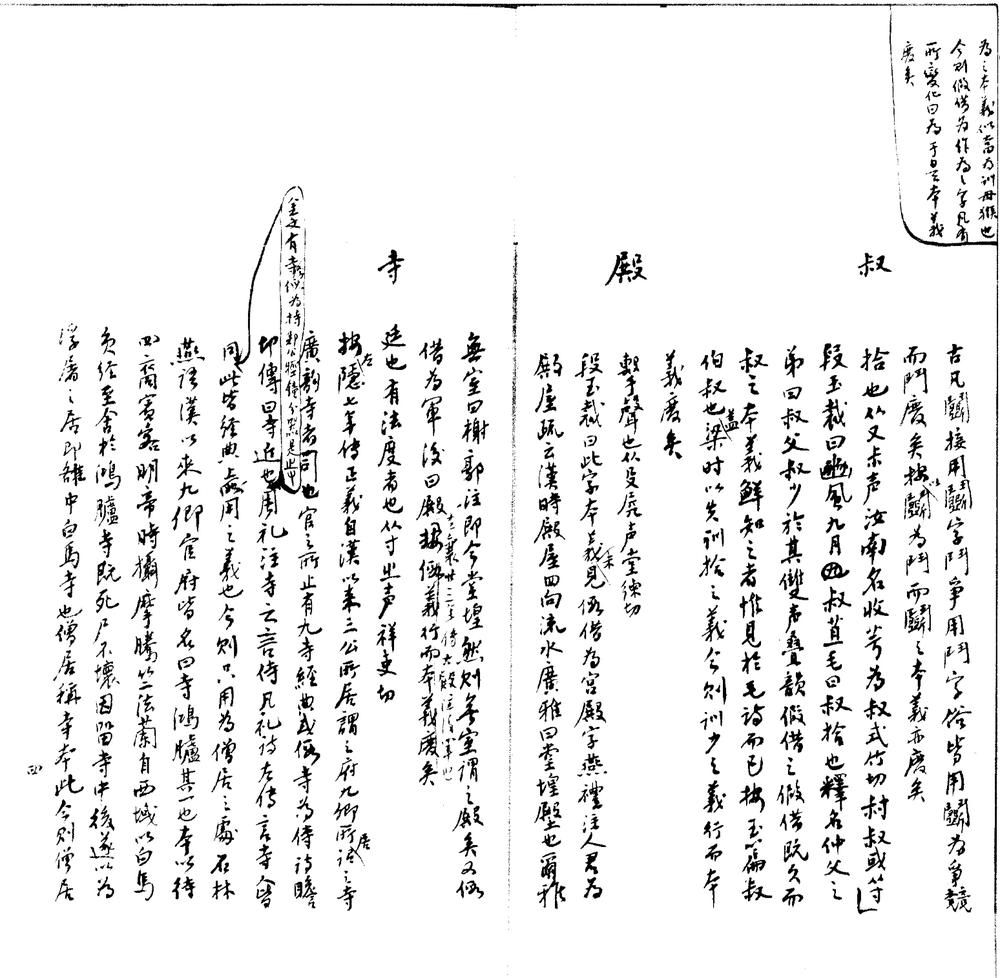 為之本義似當為訓母猴也
今則假借為作為之字凡有
所變化曰為于是本義
廢矣
古凡鬭接用鬭字鬥爭用鬥字俗皆用鬭為爭競
而鬥廢矣按以鬭為鬥而鬭之本義亦廢矣
叔
拾也从又尗声汝南名收芌為叔式竹切村叔或从寸
段玉裁曰豳風九月叔苴毛曰叔拾也釋名仲父之
弟曰叔父叔少於其雙声疊韻假借之假借既久而
叔之本義鮮知之者惟見於毛詩而已按玉篇叔
伯叔也蓋梁時以失訓拾之義今則訓少之義行而本
義廢矣
殿
擊聲也从殳𡱒声堂練切
段玉裁曰此字本義未見假借為宮殿字燕禮注人君為
殿屋疏云漢時殿屋四向流水廣雅曰堂堭壂也爾雅
無室曰榭郭注即今堂堭然則無室謂之殿矣又假
借為軍後曰殿按假借義行而本義廢矣
寺
廷也有法度者也从寸㞢声祥吏切
按左隱七年傳正義自漢以來三公所居謂之府九卿所居謂之寺
廣韵寺者司也官之所止有九寺經典或假寺為侍詩瞻
卬傳曰寺近也周礼注寺之言侍凡礼詩左傳言寺人皆
同此皆經典
用之義也今則只用為僧居之處石林
燕語漢以來九卿官府皆名曰寺鴻臚其一也本以待
四裔賓客明帝時攝摩騰竺法蘭自西域以白馬
負經至舍於鴻臚寺既死尸不壞因留寺中後遂以為
浮屠之居即雒中白馬寺也僧居稱寺本此今則僧居